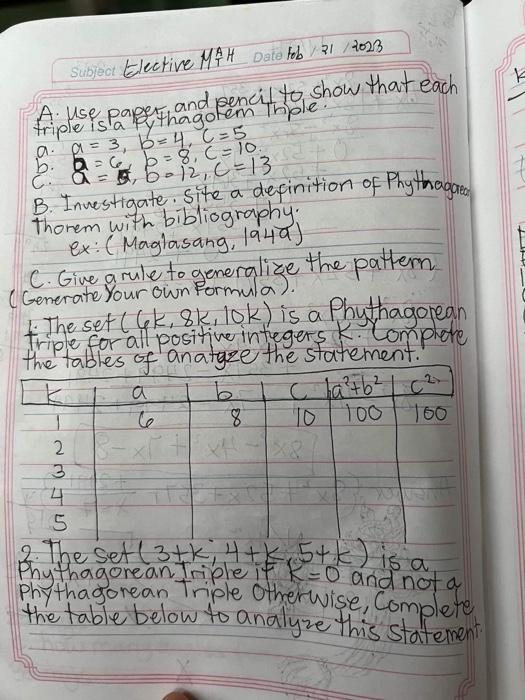 Subject Elective MATH Date Feb / 21 / 2023
A. Use paper and pencil to show that each
triple is a Pythagorem Triple.
a. a = 3, b = 4, c = 5
b. a = 6, b = 8, c = 10.
c. a = 5, b = 12, c = 13
B. Investigate. Site a definition of Phythagorean
Thorem with bibliography.
ex: (Maglasang, 1949)
C. Give a rule to generalize the pattern
(Generate Your own Formula).
1. The set (6k, 8k, 10k) is a Phythagorean
Triple for all positive integers K. Complete
the tables of anatyze the statement.
k a b c a²+b² c²
1 6 8 10 100 100
2
3
4
5
2. The set (3+k, 4+k, 5+k) is a
Phythagorean Triple if K=0 and not a
Phythagorean Triple Otherwise, Complete
the table below to analyze this statement.